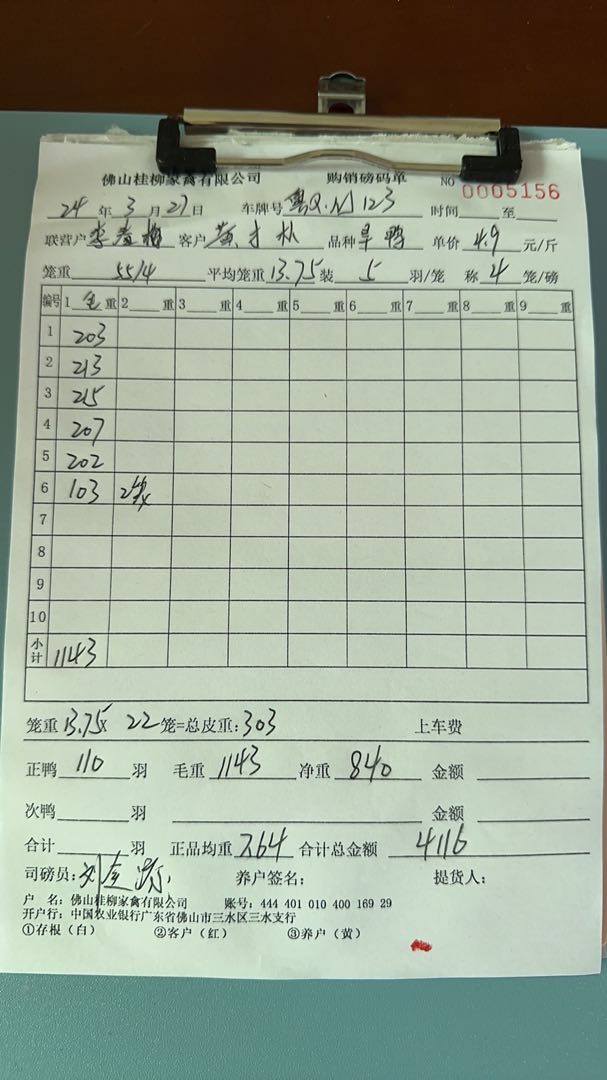 佛山桂柳家禽有限公司 购销磅码单 NO 0005156
24 年 3 月 27 日 车牌号 粤Q·N123 时间 至
联营户 李 客户 黄才 品种 旱鸭 单价 4.9 元/斤
笼重 55/4 平均笼重 13.75 装 5 羽/笼 称 4 笼/磅
编号 1 毛 重 2 重 3 重 4 重 5 重 6 重 7 重 8 重 9 重
1 203
2 213
3 215
4 207
5 202
6 103 2笼
7
8
9
10
小计 1143
笼重 13.75 x 22 笼=总皮重: 303 上车费
正鸭 110 羽 毛重 1143 净重 840 金额
次鸭 羽 金额
合计 羽 正品均重 7.64 合计总金额 4116
司磅员: 刘 养户签名: 提货人:
户 名: 佛山桂柳家禽有限公司 账号: 444 401 010 400 169 29
开户行: 中国农业银行广东省佛山市三水区三水支行
①存根(白) ②客户(红) ③养户(黄)